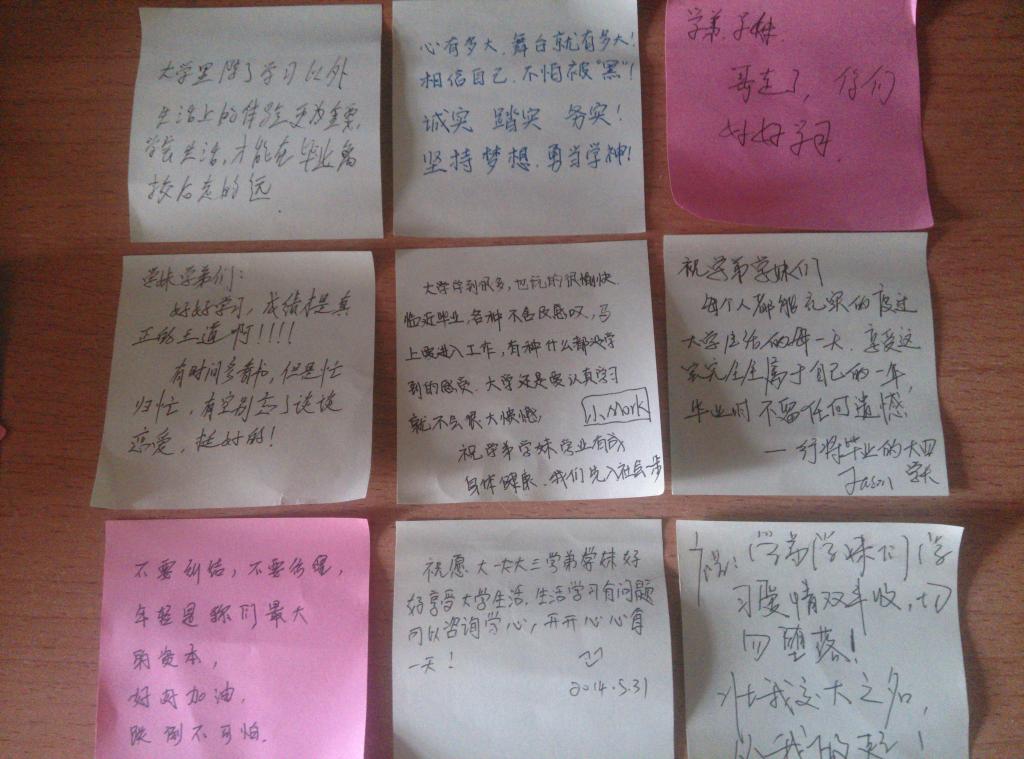 大学里除了学习以外
生活上的体验更为重要,
学会生活,才能在毕业离
校后走的远.
心有多大.舞台就有多大!
相信自己.不怕被“黑”!
诚实 踏实 务实!
坚持梦想.勇当学神!
学弟.学妹.
哥走了,你们
好好学习.
学妹学弟们:
好好学习,成绩才是真
正的王道啊!!!!
有时间多看书,但是忙
归忙,有空别忘了谈谈
恋爱,挺好的!
大学学到很多,也玩的很愉快.
临近毕业,各种不舍及感叹,马
上要进入工作,有种什么都没学
到的感觉.大学还是要认真学习
就不会很大懊憾,
小Mark
祝学弟学妹学业有成
身体健康.我们先入社会一步
祝学弟学妹们
每个人都能充实的度过
大学生活的每一天.享受这
完完全全属于自己的一年,
毕业时不留任何遗憾.
—行将毕业的大四
Jason 学长
不要纠结,不要彷徨,
年轻是我们最大
的资本,
好好加油.
跌倒不可怕.
祝愿大一大大三学弟学妹好
好享受大学生活.生活学习有问题
可以咨询学心,开开心心每
一天!
2014.5.31
祝:学弟学妹们学
习爱情双丰收,切
勿堕落!
壮我交大之名,